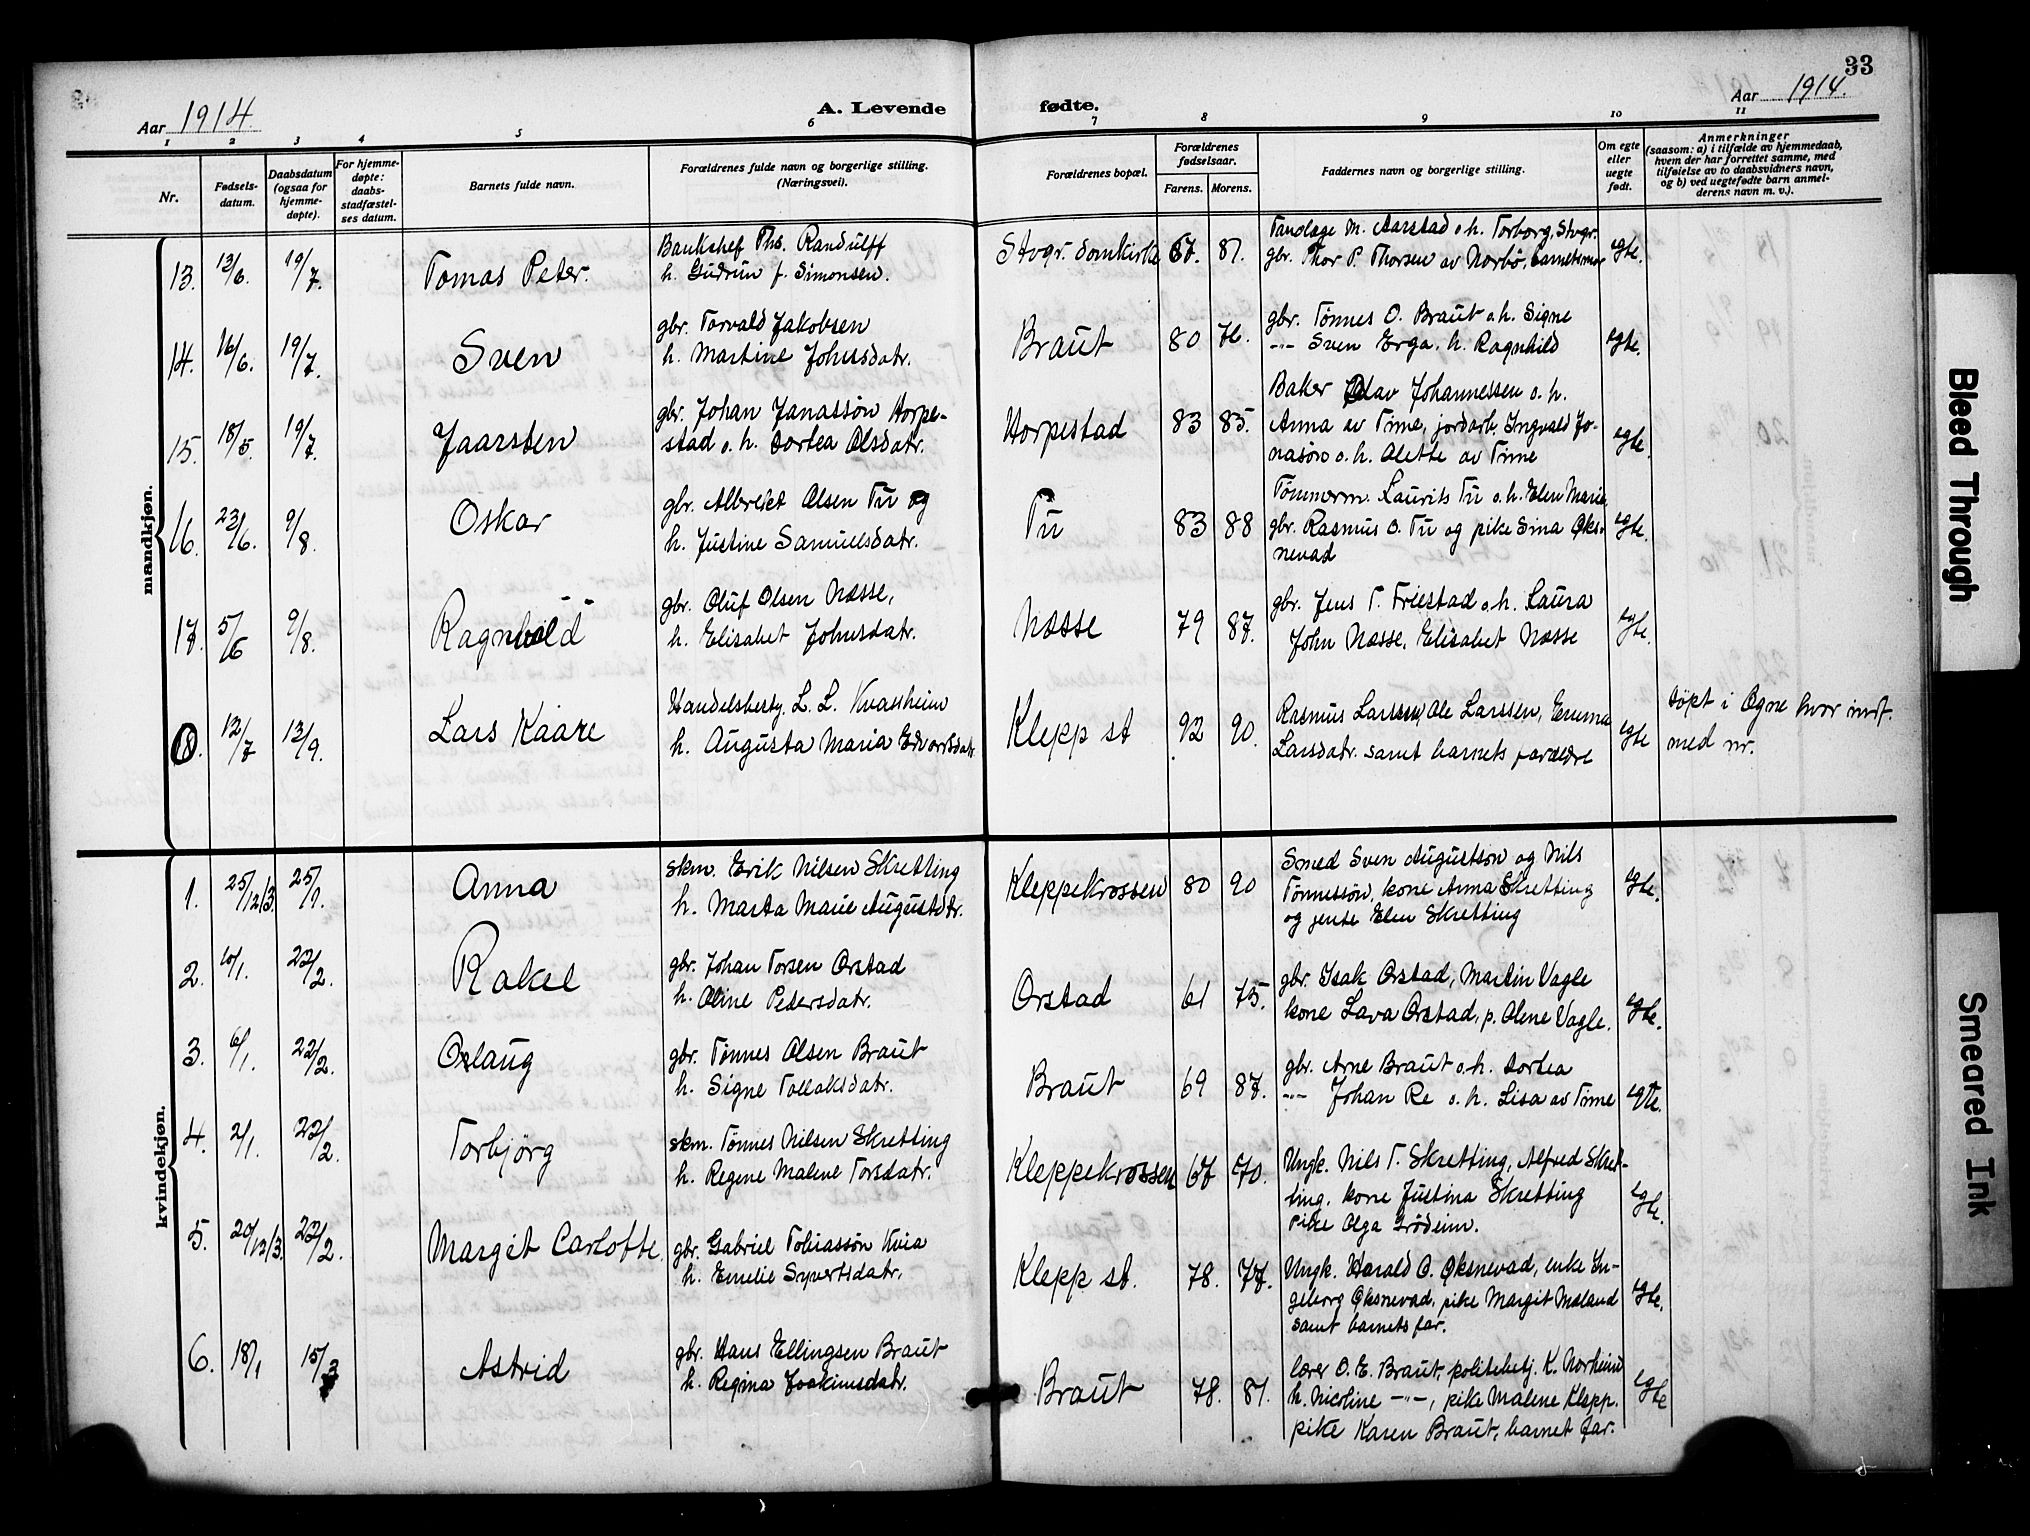 33
Aar 1914 A. Levende fødte. Aar 1914.
1 2 3 4 5 6 7 8 9 10 11
Nr.
Fødsels-
datum.
Daabsdatum
(ogsaa for
hjemme-
døpte).
For hjemme-
døpte:
daabs-
stadfæstel-
ses datum.
Barnets fulde navn.
Forældrenes fulde navn og borgerlige stilling.
(Næringsvei).
Forældrenes bopæl.
Forældrenes
fødselsaar.
Farens. Morens.
Faddernes navn og borgerlige stilling.
Om egte
eller
uegte
født.
Anmerkninger
(saasom: a) i tilfælde av hjemmedaab,
hvem der har forrettet samme, med
tilføielse av to daabsvidners navn,
og b) ved uegtefødte barn anmel-
derens navn m. v.).
mandkjøn.
13. 13/6. 19/7. Tomas Peter.
Bankchef Ths. Randulff
h. Gudrun f. Simonsen.
Stvgr. domkirke 87. 81.
Tandlæge M. Aarstad o. h. Torborg, Stvgr.
gbr. Thor P. Thorsen av Norbø, barnets mor
egte.
14. 16/6. 19/7. Sven
gbr. Torvald Jakobsen
h. Martine Johnsdatr.
Braut 80 76.
gbr. Tønnes O. Braut o. h. Signe
-"- Sven Erga. h. Ragnhild
egte.
15. 18/5. 19/7. Jaarsten
gbr. Johan Jonassøn Horpe-
stad o. h. Dortea Olsdatr.
Horpestad 83 85.
Baker Olav Johannessen o. h.
Anna av Time, jordarb. Ingvald Jo-
nasøn o. h. Alette av Time
egte.
16. 23/6. 9/8. Oskar
gbr. Albret Olsen Tu og
h. Justine Samuelsdatr.
Tu 83 88
Tømmerm. Laurits Tu o. h. Elen Marie,
gbr. Rasmus O. Tu og pike Sina Øks-
nevad
egte.
17. 5/6 9/8. Ragnvald
gbr. Oluf Olsen Næsse,
h. Elisabet Johnsdatr.
Næsse 79 87.
gbr. Jens T. Friestad o. h. Laura
John Næsse, Elisabet Næsse
egte.
18. 12/7 13/9. Lars Kaare
Handelsbesty. L. L. Kvassheim
h. Augusta Maria Edvartsdatr.
Klepp st 92 90.
Rasmus Larssen, Ole Larssen, Emma
Larsdatr. samt barnets forældre
egte
døpt i Ogne hvor indf.
med nr.
kvindekjøn.
1. 25/12/3. 25/1. Anna
skm. Erik Nilsen Skretting
h. Marta Marie Augustdtr.
Kleppekrossen 80 90
Smed Sven Augustson og Nils
Tønnessøn, kone Anna Skretting
og jente Elen Skretting
egte.
2. 10/1. 22/2. Rakel
gbr. Johan Torsen Orstad
h. Oline Petersdatr.
Orstad 61 75.
gbr. Isak Orstad, Martin Vagle
kone Lava Orstad, p. Olene Vagle.
egte.
3. 6/1. 22/2. Oslaug
gbr. Tønnes Olsen Braut
h. Signe Tollaksdatr.
Braut 69 87.
gbr. Arne Braut o. h. Dortea
-"- Johan Re o. h. Lisa av Time
egte.
4. 2/1. 22/2. Torbjørg
skm. Tønnes Nilsen Skretting
h. Regine Malene Torsdatr.
Kleppekrossen 67 70.
Ungk. Nils T. Skretting, Alfred Skret-
ting, kone Justina Skretting
Pike Olga Grødeim.
egte.
5. 20/12/3. 22/2. Margit Carlotte.
gbr. Gabriel Tobiassøn Kvia
h. Emelie Syvertsdatr.
Klepp st. 78. 77.
Ungk. Harald O. Øksnevad, enke In-
geborg Øksnevad, pike Margit Meland
samt barnets far.
egte.
6. 18/1 15/3 Astrid
gbr. Hans Ellingsen Braut
h. Regina Joakimsdatr.
Braut 78. 81.
lærer O. E. Braut, politibetj. K. Norheim
h. Nicoline -"-, pike Malene Klepp.
pike Karen Braut, barnet far.
egte
Bleed Through
Smeared Ink